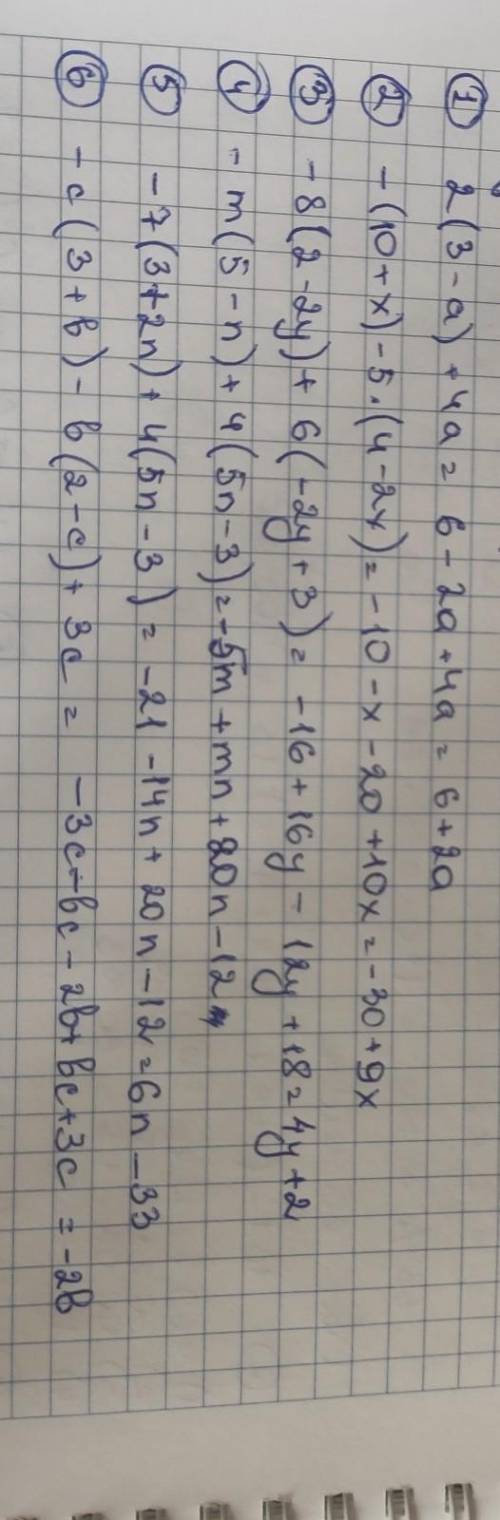 ① 2(3-a)+4a = 6-2a+4a = 6+2a
② -(10+x)-5·(4-2x) = -10-x-20+10x = -30+9x
③ -8(2-2y)+6(-2y+3) = -16+16y-12y+18 = 4y+2
④ -m(5-n)+4(5n-3) = -5m+mn+20n-12
⑤ -7(3+2n)+4(5n-3) = -21-14n+20n-12 = 6n-33
⑥ -c(3+b)-b(2-c)+3c = -3c-bc-2b+bc+3c = -2b